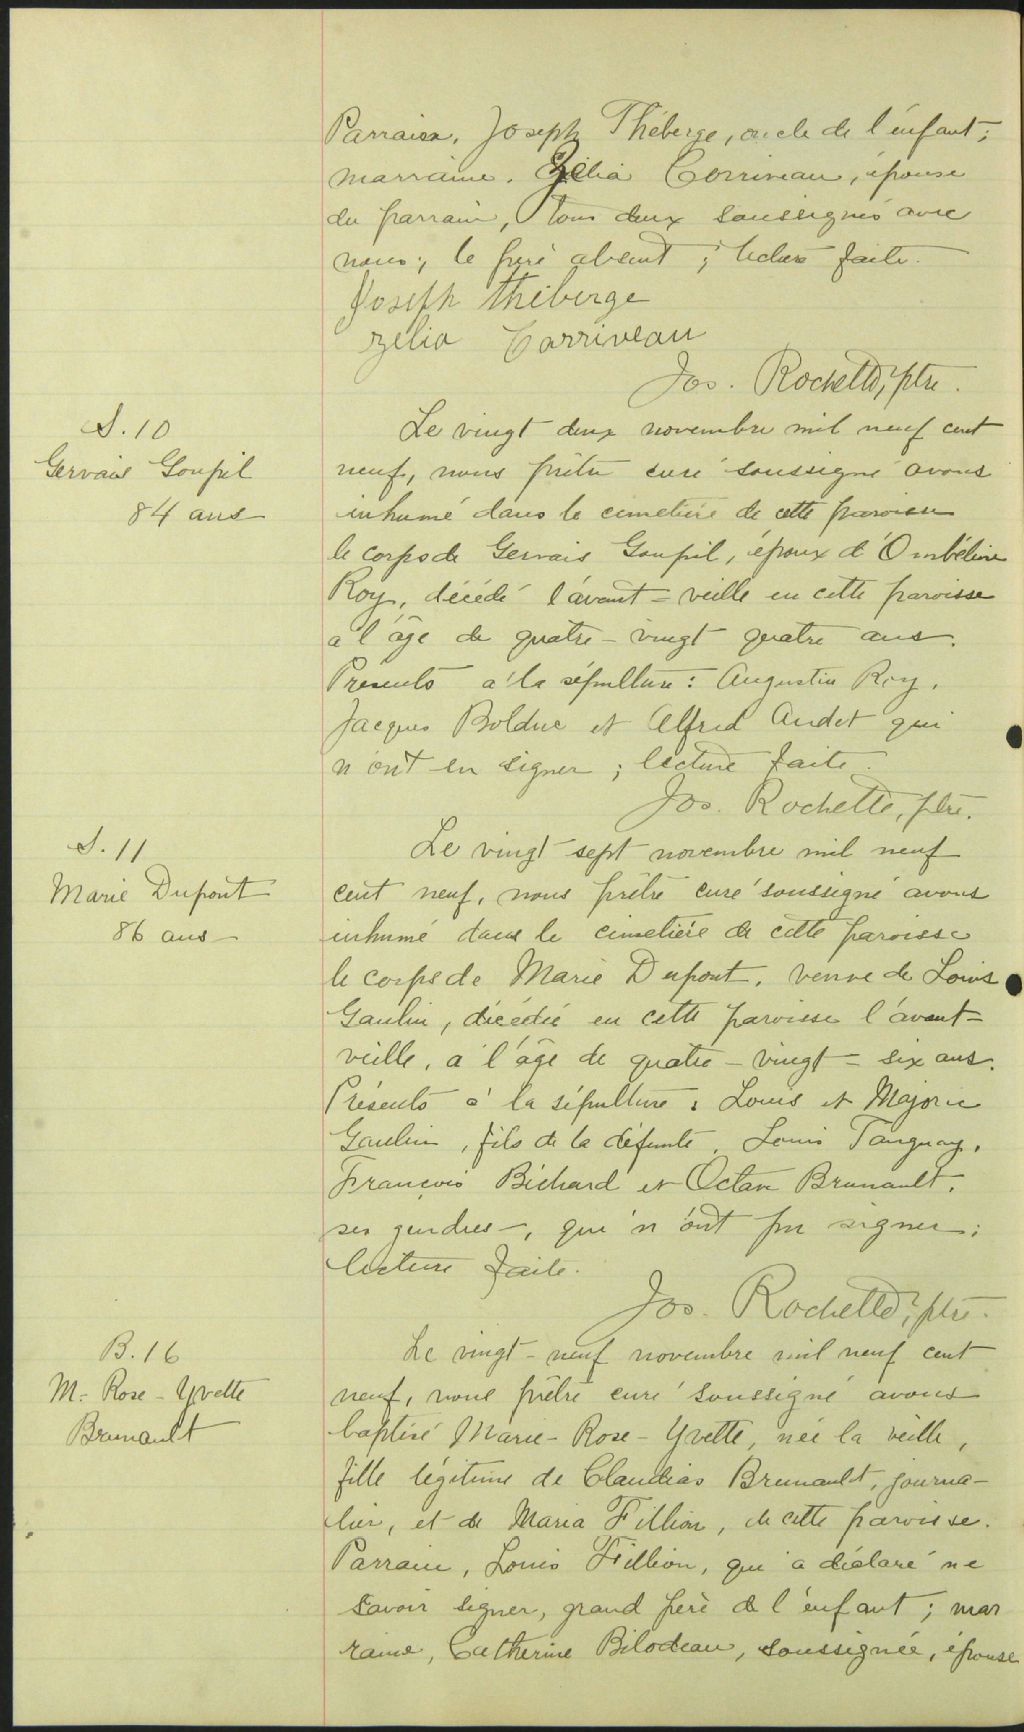 Parrain, Joseph Théberge, oncle de l'enfant;
marraine, Zélia Corriveau, épouse
du parrain, tous deux soussignés avec
nous; le père absent; lecture faite.
Joseph Théberge
Zelia Corriveau
Jos. Rochette, ptre.
S. 10
Gervais Goupil
84 ans
Le vingt deux novembre mil neuf cent
neuf, nous prêtre curé soussigné avons
inhumé dans le cimetière de cette paroisse
le corps de Gervais Goupil, époux d'Ombéline
Roy, décédé l'avant-veille en cette paroisse
à l'âge de quatre-vingt quatre ans.
Présents à la sépulture: Augustin Roy,
Jacques Bolduc et Alfred Audet qui
n'ont su signer; lecture faite.
Jos. Rochette, ptre.
S. 11
Marie Dupont
86 ans
Le vingt sept novembre mil neuf
cent neuf, nous prêtre curé soussigné avons
inhumé dans le cimetière de cette paroisse
le corps de Marie Dupont, veuve de Louis
Gaulin, décédée en cette paroisse l'avant-
veille, à l'âge de quatre-vingt-six ans.
Présents à la sépulture: Louis et Majoric
Gaulin, fils de la défunte, Louis Tanguay,
François Bichard et Octave Brunault,
ses gendres, qui n'ont pu signer;
lecture faite.
Jos. Rochette, ptre.
B. 16
M.-Rose-Yvette
Brunault
Le vingt-neuf novembre mil neuf cent
neuf, nous prêtre curé soussigné avons
baptisé Marie-Rose-Yvette, née la veille,
fille légitime de Claudias Brunault, journa-
lier, et de Maria Fillion, de cette paroisse.
Parrain, Louis Fillion, qui a déclaré ne
savoir signer, grand père de l'enfant; mar
raine, Catherine Bilodeau, soussignée, épouse